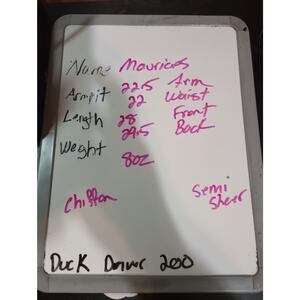 Name Maurices
Armpit 22.5 Arm
22 Waist
Length 28 Front
29.5 Back
Weght 8oz
Chiffon
Semi
Sheer
Duck 200